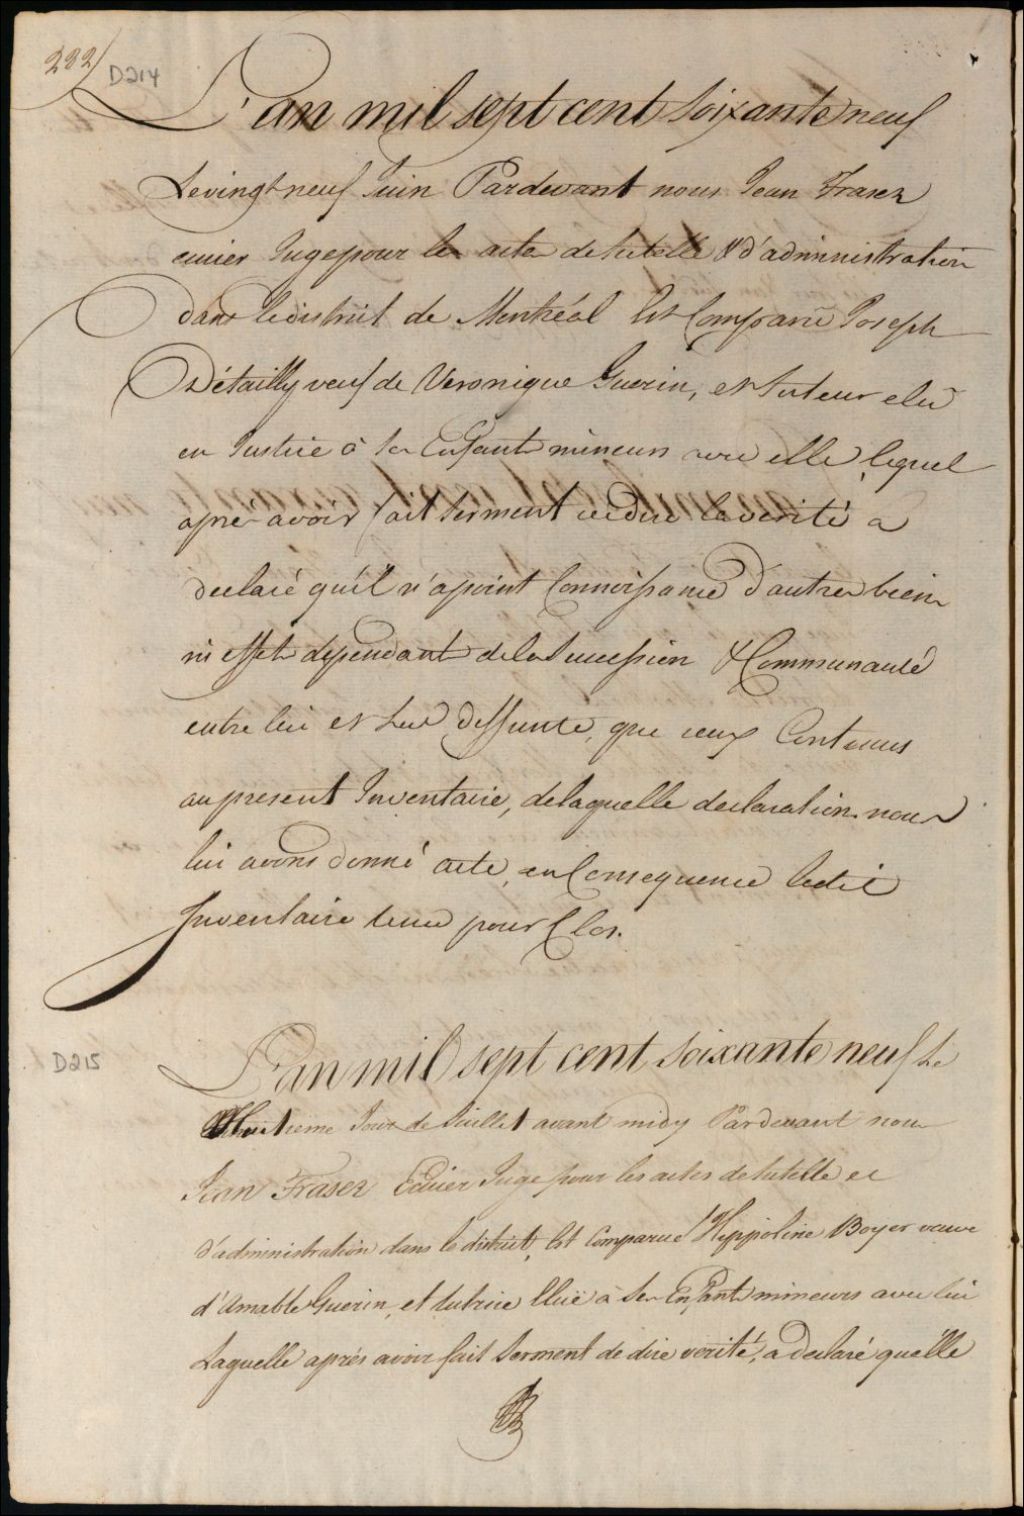 282/
D214
L'an mil sept cent soixante neuf
Le vingt neuf Juin Pardevant nous Jean Fraser
ecuier Juge pour les actes de tutelle & d'administration
dans le district de Montréal Est Comparu Joseph
Détailly veuf de Veronique Guerin, et tuteur elu
en Justice à ses Enfants mineurs avec elle lequel
après avoir fait serment de dire la verité a
declaré qu'il n'a point Connoissance d'autres biens
ni effets dependants de la Succession & Communauté
entre lui et lad. deffunte, que ceux Contenus
au present Inventaire, de laquelle declaration nous
lui avons donné acte, en Consequence ledit
Inventaire tenu pour Clos.
D215
L'an mil sept cent soixante neuf Le
Huitieme Jour de Juillet avant midy Pardevant nous
Jean Fraser Ecuier Juge pour les actes de tutelle et
d'administration dans le district, Est Comparue Hyppoline Boyer veuve
d'Amable Guerin, et tutrice Eluë à ses Enfants mineurs avec lui
Laquelle après avoir fait Serment de dire verité, a declaré quelle